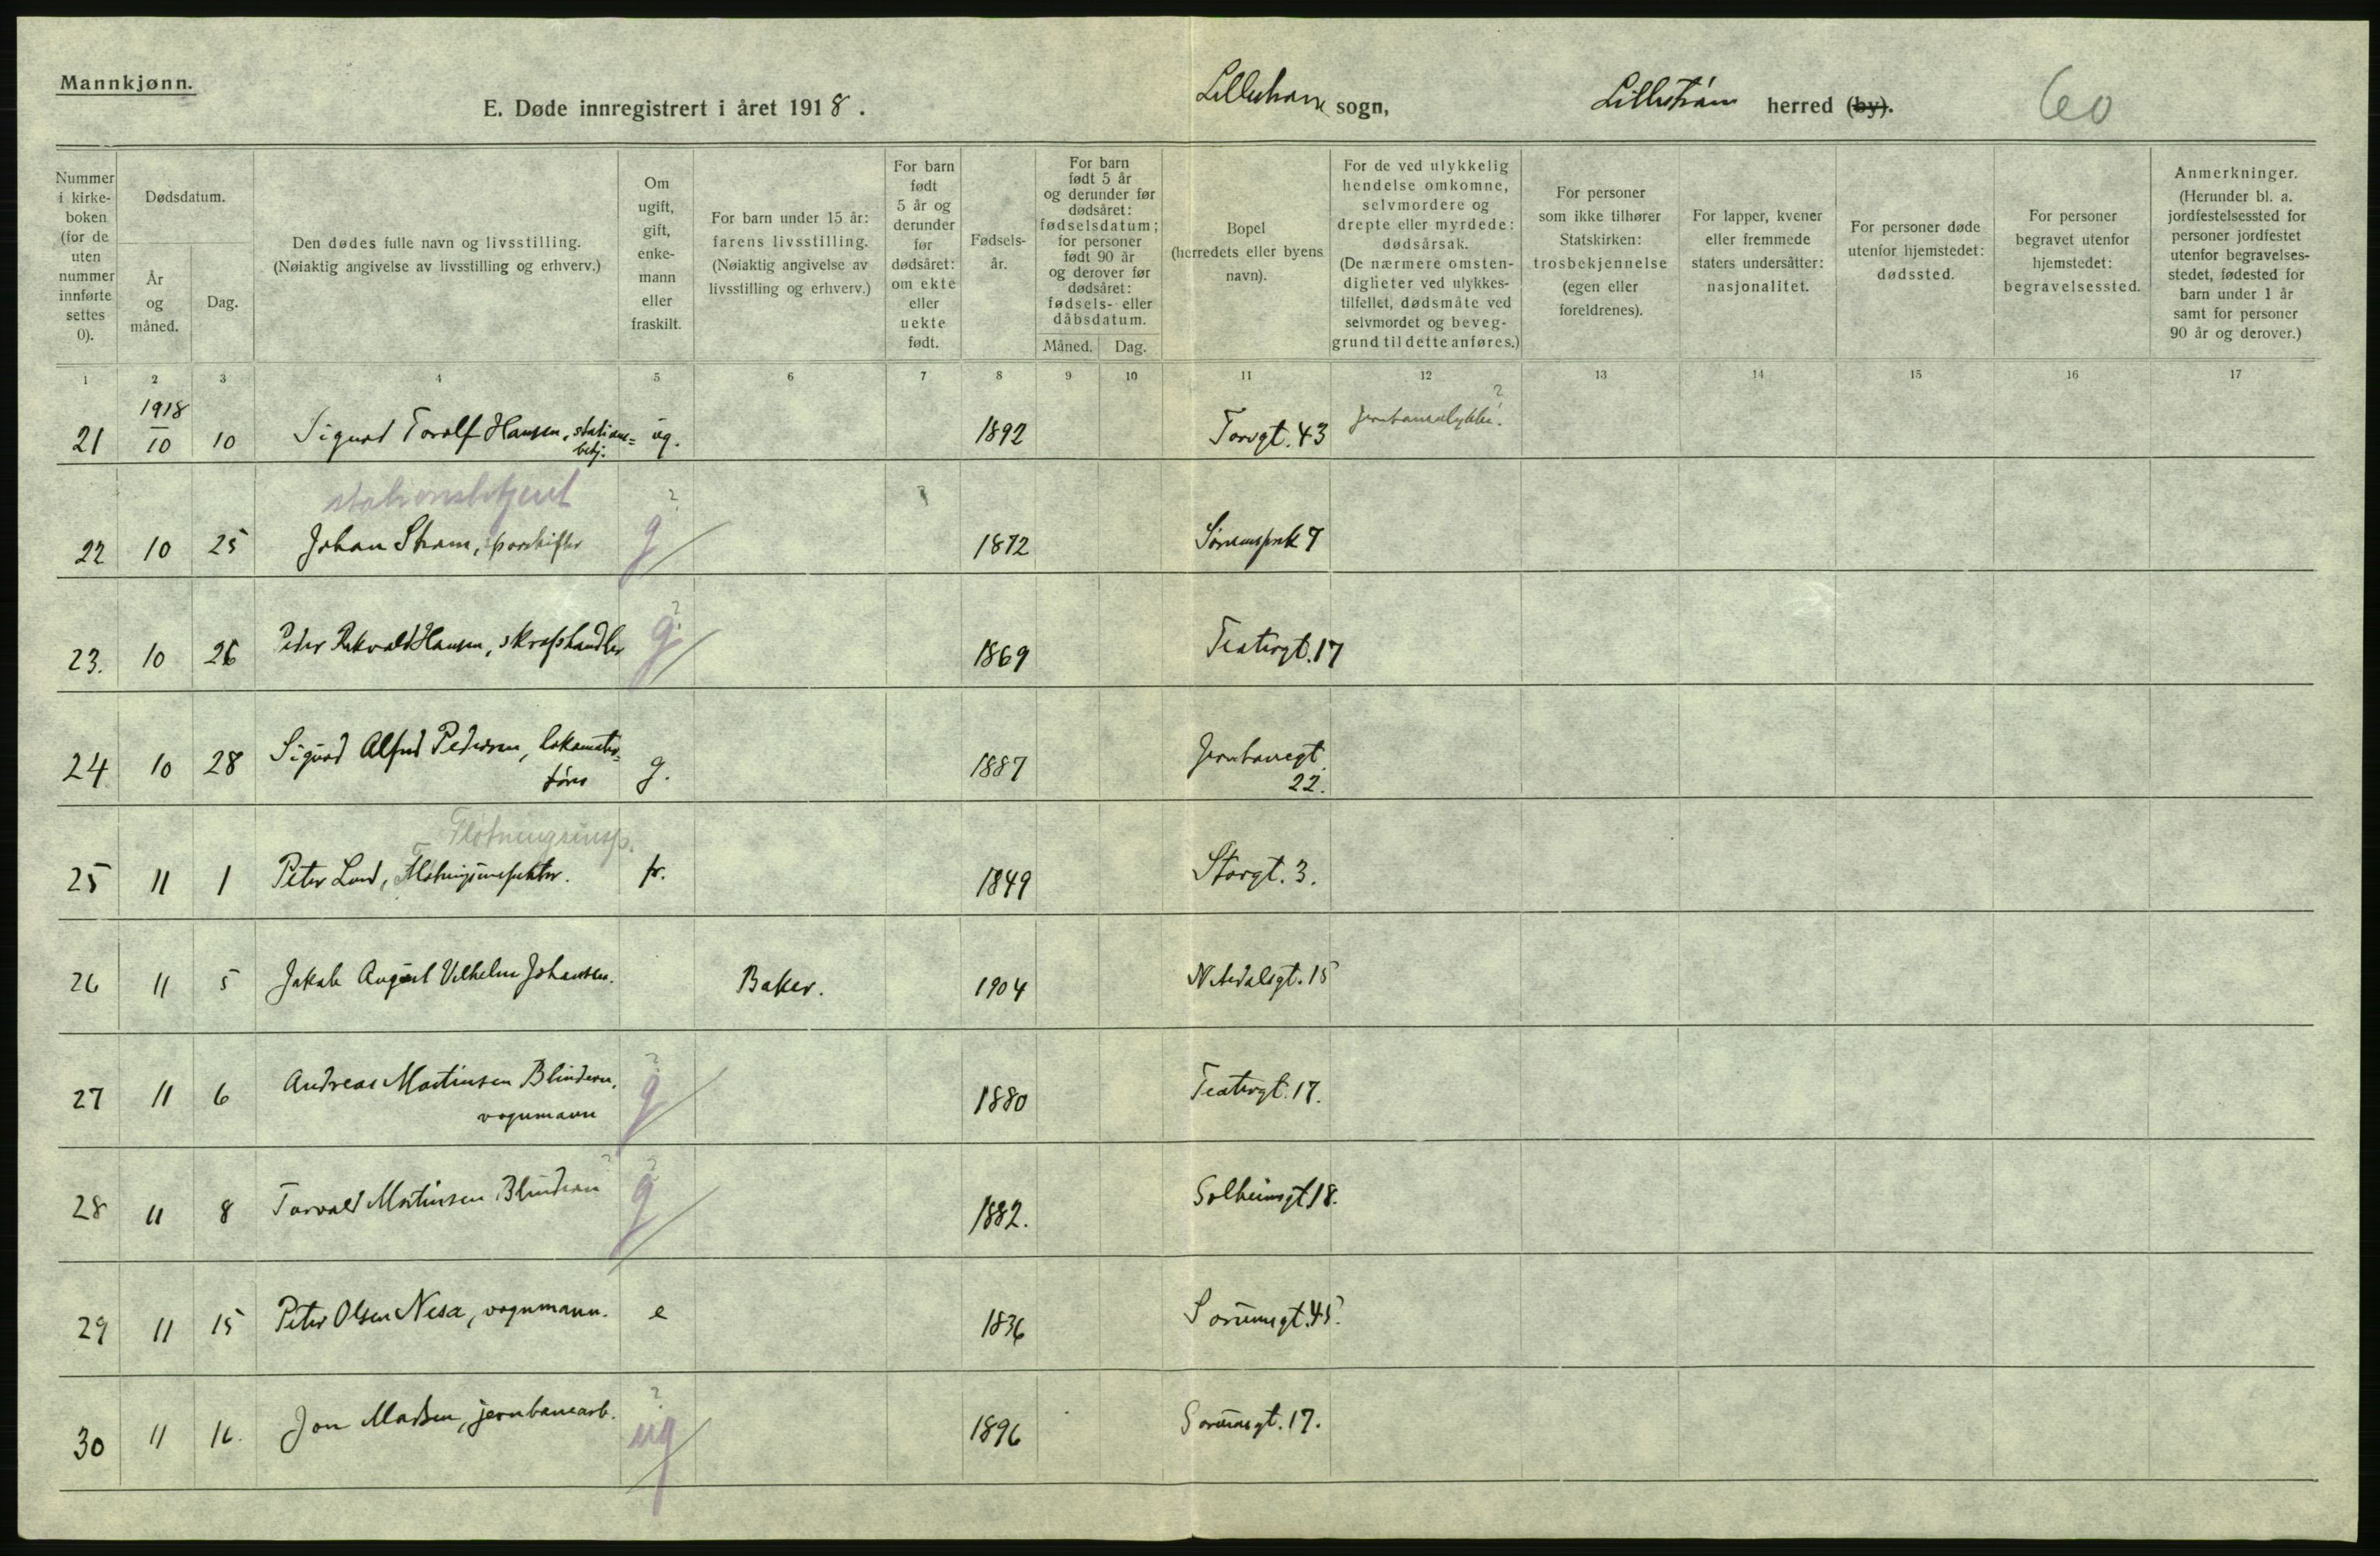 Mannkjønn.
E. Døde innregistrert i året 1918.
Lillestrøm sogn,
Lillestrøm herred (by).
60
Nummer i kirkeboken (for de uten nummer innførte settes 0).
Dødsdatum.
År og måned.
Dag.
Den dødes fulle navn og livsstilling.
(Nøiaktig angivelse av livsstilling og erhverv.)
Om ugift, gift, enkemann eller fraskilt.
For barn under 15 år: farens livsstilling.
(Nøiaktig angivelse av livsstilling og erhverv.)
For barn født 5 år og derunder før dødsåret: om ekte eller uekte født.
Fødselsår.
For barn født 5 år og derunder før dødsåret: fødselsdatum; for personer født 90 år og derover før dødsåret: fødsels- eller dåbsdatum.
Måned.
Dag.
Bopel (herredets eller byens navn).
For de ved ulykkelig hendelse omkomne, selvmordere og drepte eller myrdede: dødsårsak.
(De nærmere omstendigheter ved ulykkestilfellet, dødsmåte ved selvmordet og beveggrund til dette anføres.)
For personer som ikke tilhører Statskirken: trosbekjennelse (egen eller foreldrenes).
For lapper, kvener eller fremmede staters undersåtter: nasjonalitet.
For personer døde utenfor hjemstedet: dødssted.
For personer begravet utenfor hjemstedet: begravelsessted.
Anmerkninger.
(Herunder bl. a. jordfestelsessted for personer jordfestet utenfor begravelsesstedet, fødested for barn under 1 år samt for personer 90 år og derover.)
1 2 3 4 5 6 7 8 9 10 11 12 13 14 15 16 17
1918
21 10 10 Sigurd Torolf Hansen, stations=betj. ug. 1892 Torvgt. 43 Jernbaneulykke. ?
stationsbetjent
22 10 25 Johan Strøm, sporskifter g ? 1872 7
23. 10 26 Peder Hansen, skraphandler g. ? 1869 Teatergt. 17
24 10 28 Sigurd Alfred Pedersen, lokomotiv=fører g. 1887 Jernbanegt. 22.
Fløtningsinsp.
25 11 1 Peter Lund, Fløtningsinspektør. fr. 1849 Storgt. 3.
26 11 5 Jakob August Vilhelm Johansen. Baker. 1904 Nitedalsgt. 15
27 11 6 Andreas Martinsen Blindern, vognmann g ? 1880 Teatergt. 17.
28 11 8 Torvald Martinsen Blindern ? g ? 1882. Solheimsgt. 18.
29 11 15 Peter Olsen Nesa, vognmann. e 1836 Sørumsgt. 45.
30 11 16. Jon Madsen, jernbanearb. ug ? 1896 Sørumsgt. 17.